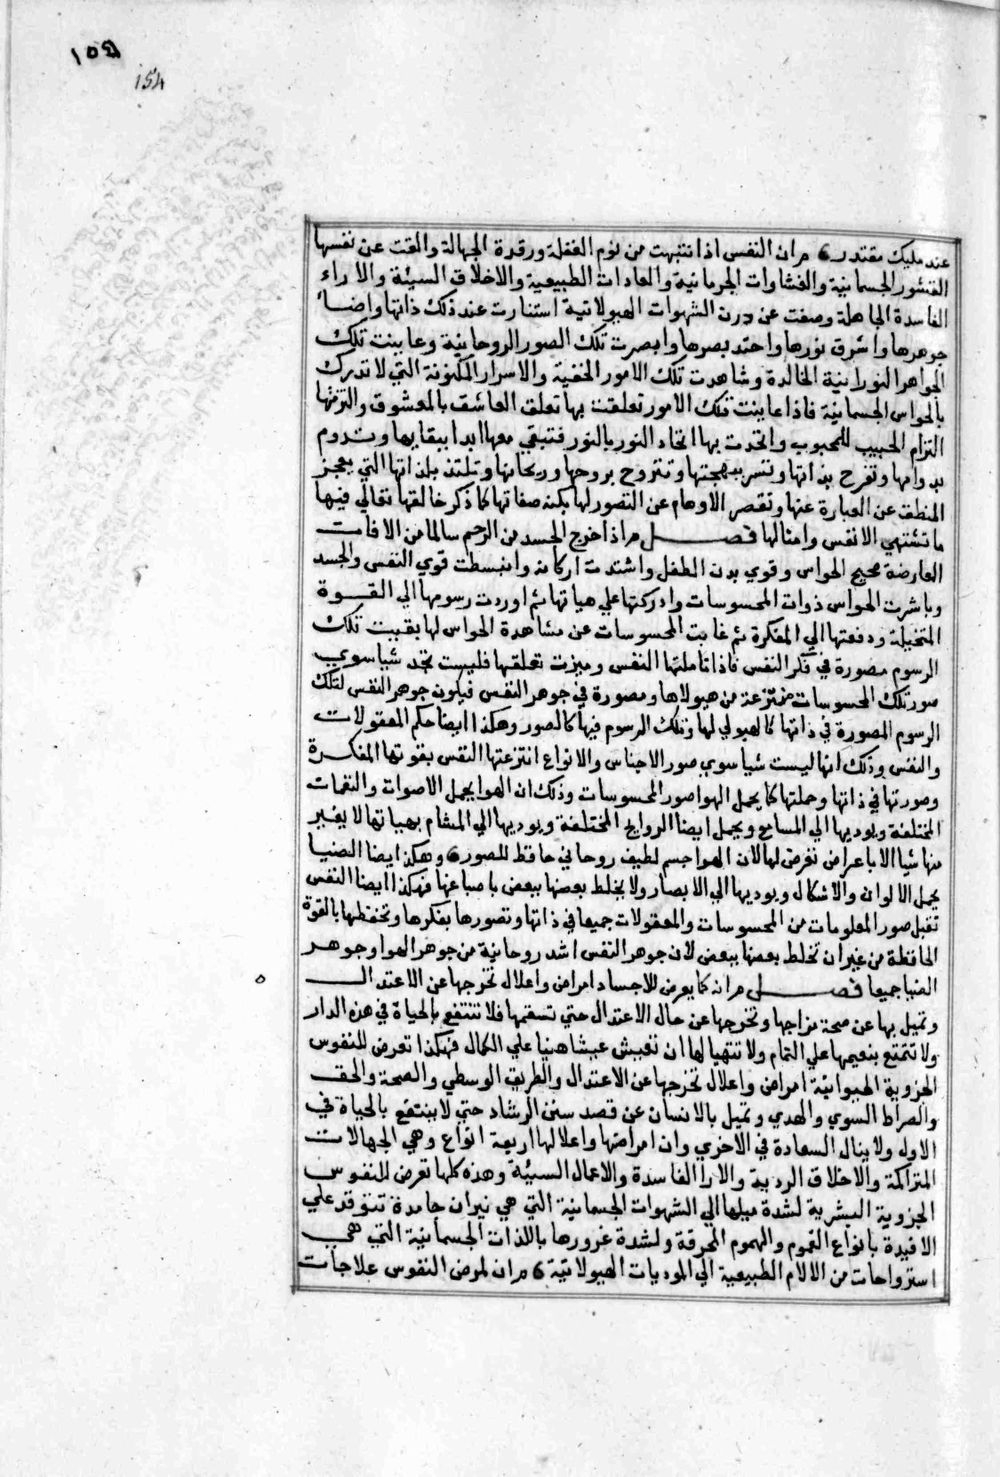 ١٥٤
154
عند مليك مقتدر ٥ مر ان النفس اذا انتبهت من نوم الغفلة ورقدة الجهالة والقت عن نفسها
القشور الجسمانية والغشاوات الجرمانية والعادات الطبيعية والاخلاق السيئة والاراء
الفاسدة الجاهلة وصفت عن درن الشهوات الهيولانية استنارت عند ذلك ذاتها واضا
جوهرها واشرق نورها واحتد بصرها وابصرت تلك الصور الروحانية وعاينت تلك
الجواهر النورانية الخالدة وشاهدت تلك الامور الخفية والاسرار المكنونة التي لا تدرك
بالحواس الجسمانية فاذا عاينت تلك الامور تعلقت بها تعلق العاشق بالمعشوق والتزمتها
التزام الحبيب للمحبوب واتحدت بها اتحاد النور بالنور فتبقي معها ابدا ببقايها وتدوم
بدوامها وتفرح بذاتها وتسر ببهجتها وتتروح بروحها وريحانها وتلتذ بلذاتها التي يعجز
المنطق عن العبارة عنها وتقصر الاوهام عن التصور لها بكنه صفاتها كما ذكر خالقها تعالي فيها
ما تشتهي الانفس وامثالها فصل مر اذا خرج الجسد من الرحم سالما من الافات
العارضة صحيح الحواس وقوي بدن الطفل واشتدت اركانه وانبسطت قوي النفس والجسد
وباشرت الحواس ذوات المحسوسات وادركتها علي هياتها ثم اوردت رسومها الي القوة
المتخيلة ودفعتها الي المفكرة ثم غابت المحسوسات عن مشاهدة الحواس لها بقيت تلك
الرسوم مصورة في فكر النفس فاذا تاملتها النفس وميزت تعلقها فليست تجد شيا سوي
صور تلك المحسوسات منتزعة من هيولاها ومصورة في جوهر النفس فيكون جوهر النفس لتلك
الرسوم المصورة في ذاتها كالهيولي لها وتلك الرسوم فيها كالصور وهكذا ايضا حكم المعقولات
والنفس وذلك انها ليست شيا سوي صور الاجناس والانواع انتزعتها النفس بقوتها المفكرة
وصورتها في ذاتها وحملتها كما يحمل الهوا صور المحسوسات وذلك ان الهوا يحمل الاصوات والنغمات
المختلفة ويوديها الي المسامع ويحمل ايضا الروايح المختلفة ويوديها الي المشام بهياتها لا يغير
منها شيا الا باعراض تعرض لها لان الهوا جسم لطيف روحاني حافظ للصور ٥ وهكذا ايضا الضيا
يحمل الالوان والاشكال ويوديها الي الابصار ولا يخلط بعضها ببعض باصباغها فهكذا ايضا النفس
تقبل صور المعلومات من المحسوسات والمعقولات جميعا في ذاتها وتصورها بفكرها وتحفظها بالقوة
الحافظة من غير ان تخلط بعضها ببعض لان جوهر النفس اشد روحانية من جوهر الهوا وجوهر
الضيا جميعا فصل مر انه كما يعرض للاجساد امراض واعلال تخرجها عن الاعتدال
وتميل بها عن صحة مزاجها وتخرجها عن حال الاعتدال حتي تسقمها فلا تنتفع بالحياة في هذه الدار
ولا تتمتع بنعيمها علي التمام ولا تتهيا لها ان تعيش عيشا هنيا علي الكمال فهكذا تعرض للنفوس
الجزوية الحيوانية امراض واعلال تخرجها عن الاعتدال والطريق الوسطي والصحة والحق
والصراط السوي والهدي وتميل بالانسان عن قصد سنن الرشاد حتي لا ينتفع بالحياة في
الاولي ولا ينال السعادة في الاخري وان امراضها واعلالها اربعة انواع وهي الجهالات
المتراكمة والاخلاق الردية والارا الفاسدة والاعمال السيئة وهذه كلها تعرض للنفوس
الجزوية البشرية لشدة ميلها الي الشهوات الجسمانية التي هي نيران جامدة تتوقد علي
الافيدة بانواع الغموم والهموم المحرقة ولشدة غرورها باللذات الجسمانية التي هي
استرواحات من الالام الطبيعية الي الموديات الهيولانية ٥ مر ان لمرض النفوس علاجات